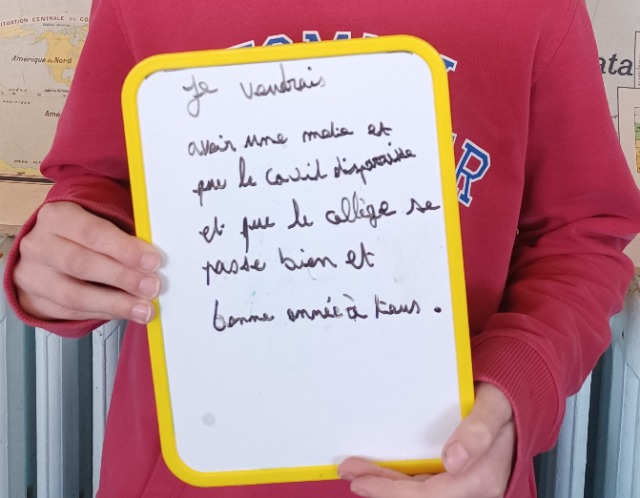 ITUATION CENTRALE DU CO
Amérique du Nord
Ame
ata
TOMMY
R
Je voudrais
avoir une moto et
que le covid disparaisse
et que le collège se
passe bien et
bonne année à tous.